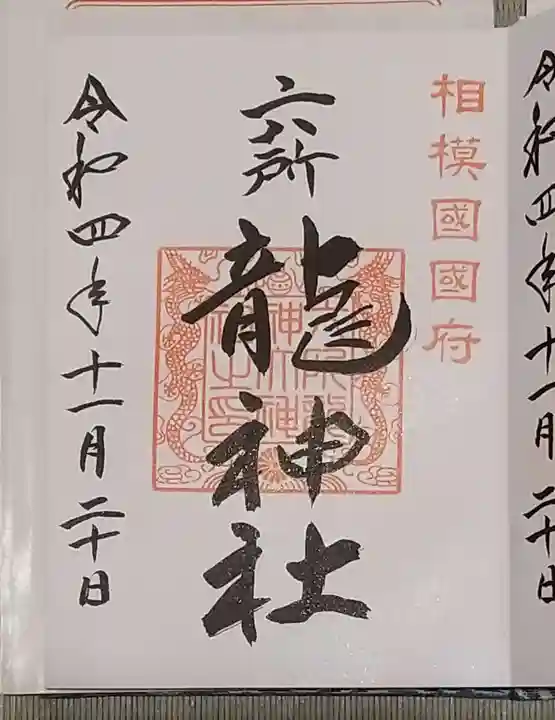 相模國國府
六所
龍神社
令和四年十一月二十日
令和四年十一月二十日